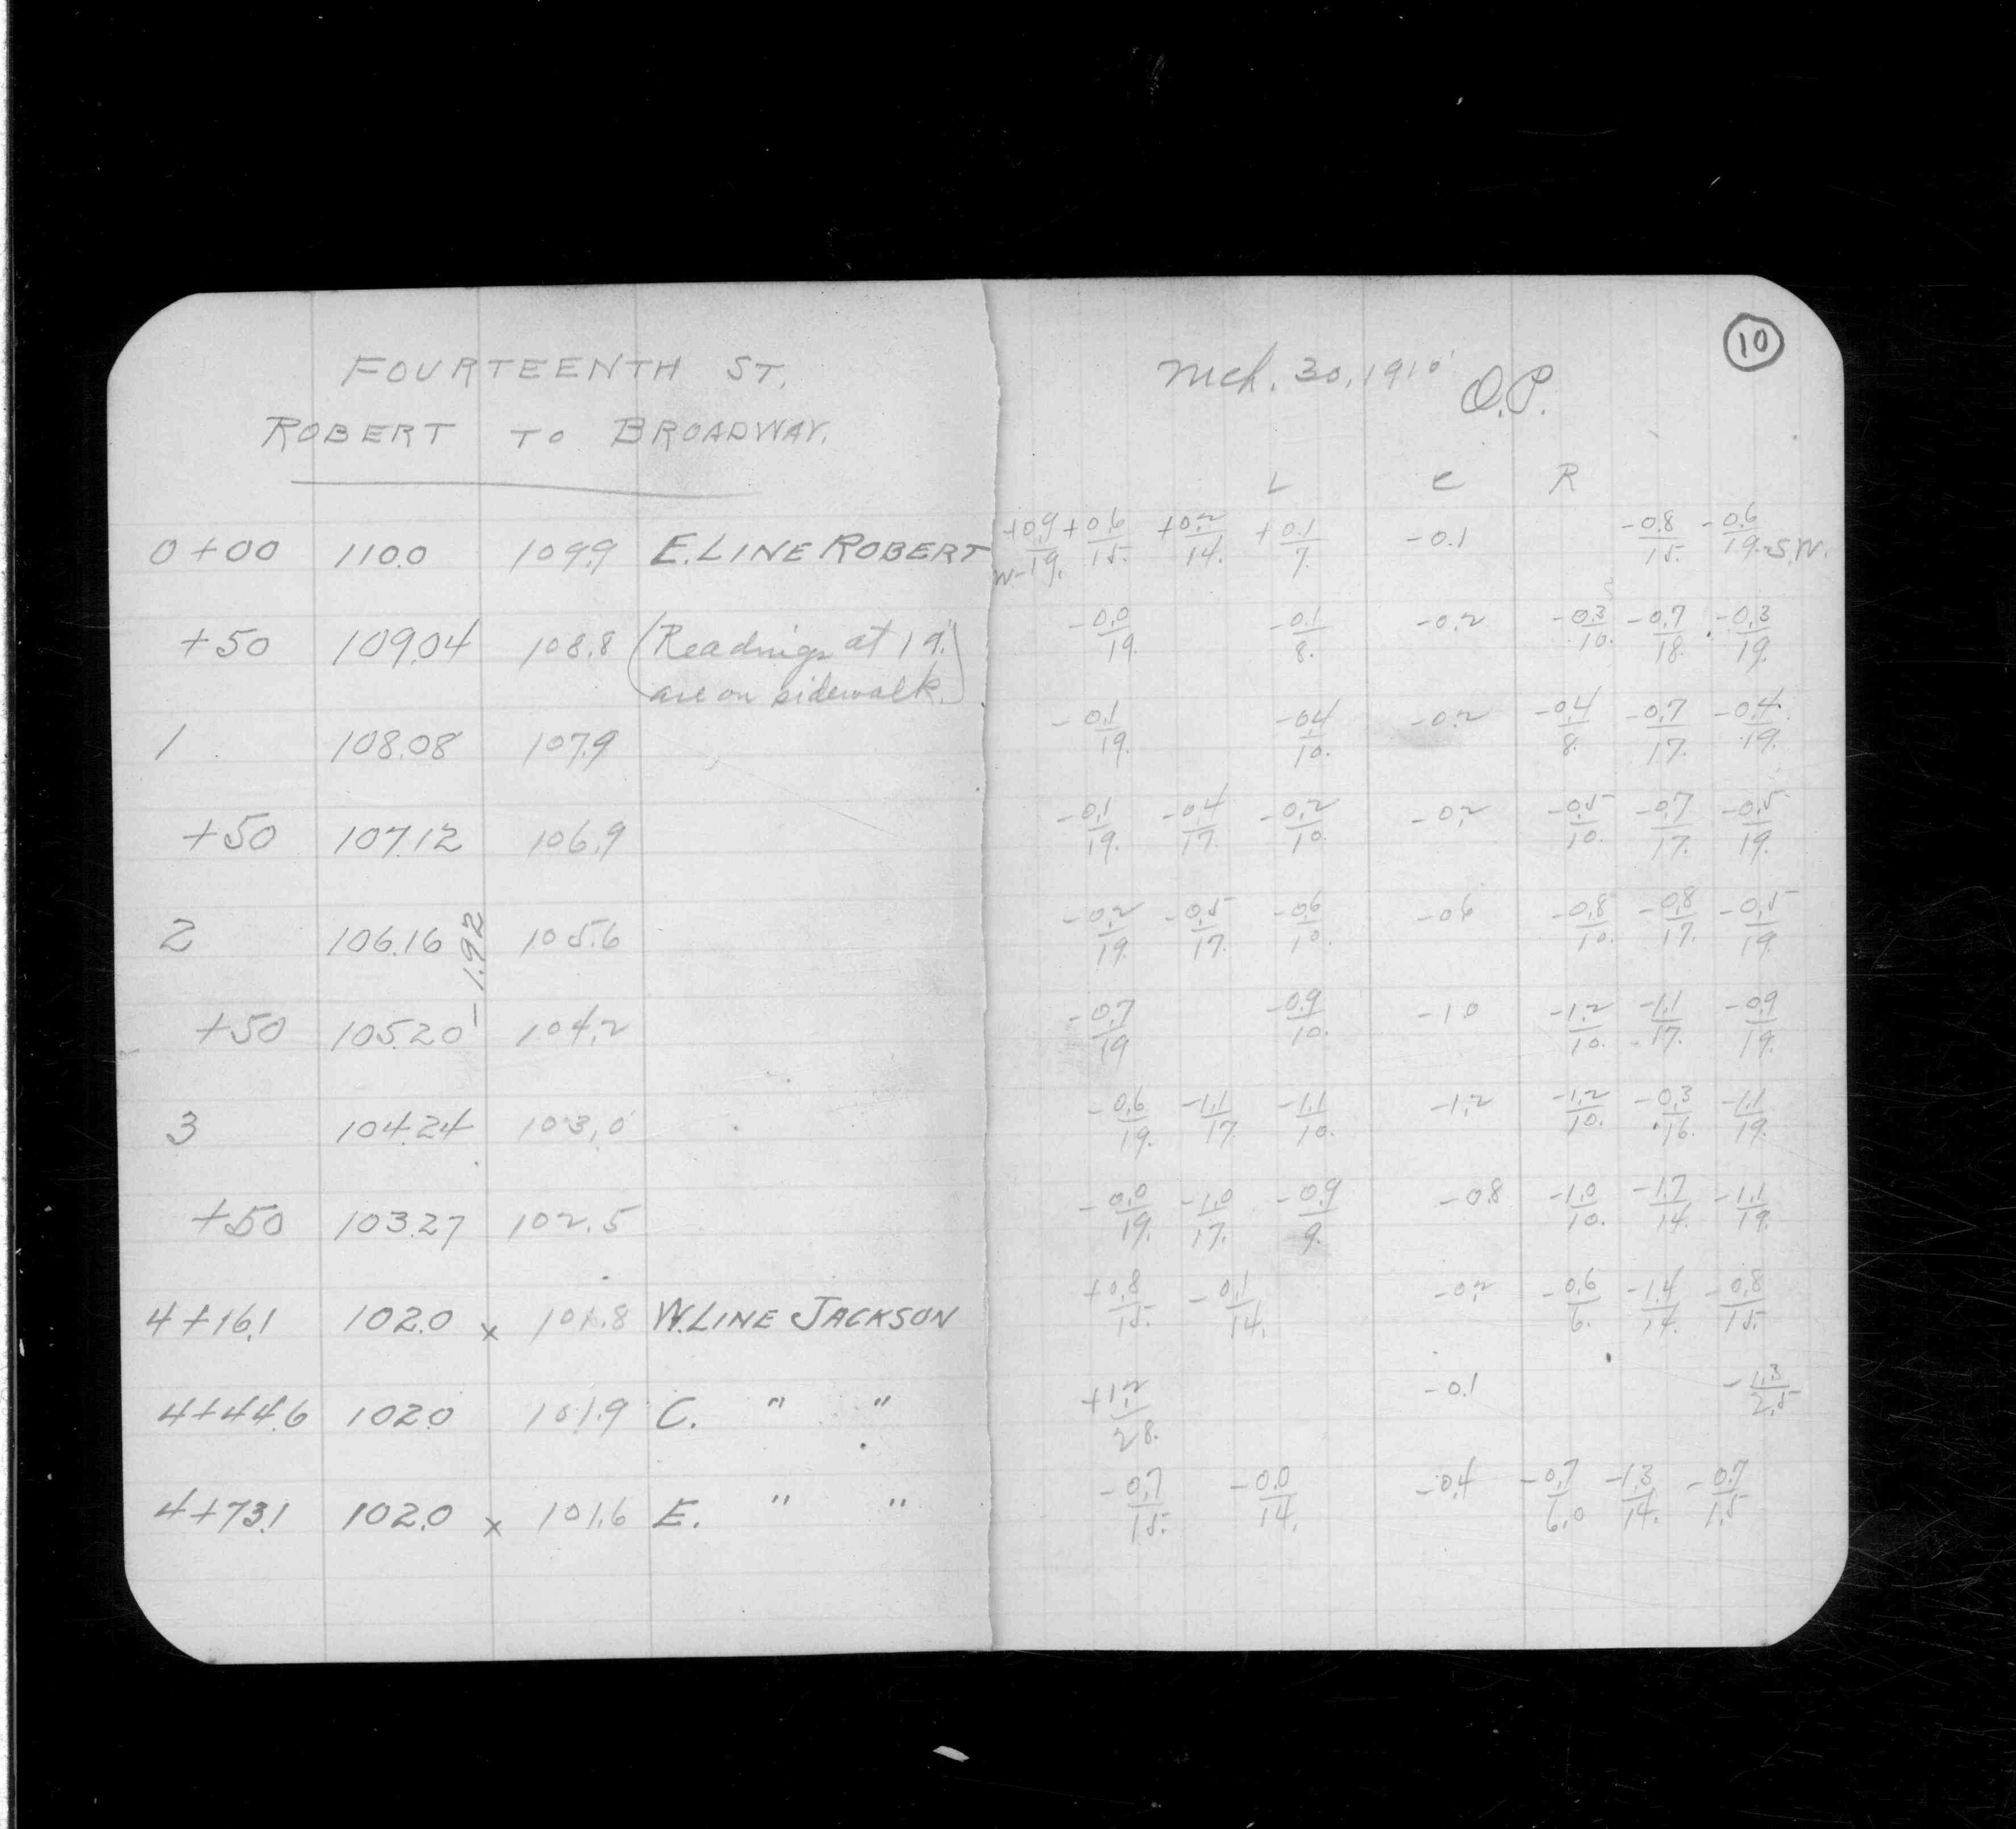 10
FOURTEENTH ST.
ROBERT TO BROADWAY.
Mch. 30, 1910
O.P.
L C R
0+00 110.0 109.9 E. LINE ROBERT +0.9/19 +0.6/15. +0.2/14. +0.1/7. -0.1 -0.8/15. -0.6/19. S.W.
+50 109.04 108.8 (Readings at 19. -0.0/19. -0.1/8. -0.2 -0.3/10. -0.7/18. -0.3/19.
are on sidewalk.)
1 108.08 107.9 -0.1/19. -0.4/10. -0.2 -0.4/8. -0.7/17. -0.4/19.
+50 107.12 106.9 -0.1/19. -0.4/17. -0.2/10. -0.2 -0.5/10. -0.7/17. -0.5/19.
2 106.16 105.6 -0.2/19. -0.5/17. -0.6/10. -0.6 -0.8/10. -0.8/17. -0.5/19.
-1.92
+50 105.20 104.2 -0.7/19 -0.9/10. -1.0 -1.2/10. -1.1/17. -0.9/19.
3 104.24 103.0 -0.6/19. -1.1/17 -1.1/10. -1.2 -1.2/10. -0.3/16. -1.1/19.
+50 103.27 102.5 -0.0/19. -1.0/17. -0.9/9. -0.8 -1.0/10. -1.7/14. -1.1/19.
4+16.1 102.0 x 101.8 W. LINE JACKSON +0.8/15. -0.1/14. -0.2 -0.6/6. -1.4/14. -0.8/15.
4+44.6 102.0 101.9 C. " " +1.2/28. -0.1 -1.3/25
4+73.1 102.0 x 101.6 E. " " -0.7/15. -0.0/14. -0.4 -0.7/6.0 -1.3/14. -0.7/15